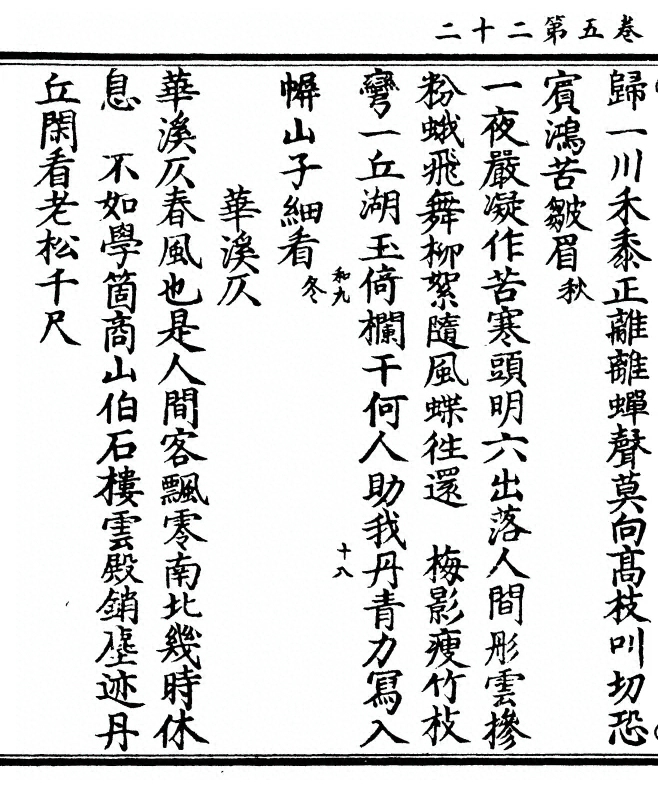 卷五第二十二
歸一川禾黍正離離蟬聲莫向髙枝叫切恐
賓鴻苦皺眉秋
一夜嚴凝作苦寒頭明六出落人間彤雲摻
粉蛾飛舞柳絮隨風蝶徃還　梅影瘦竹枝
彎一丘湖玉倚欄干何人助我丹青力冩入
和九
十八
幈山子細看冬
華溪仄
華溪仄春風也是人間客飄零南北幾時休
息　不如學箇商山伯石樓雲殿銷塵迹丹
丘閑看老松千尺